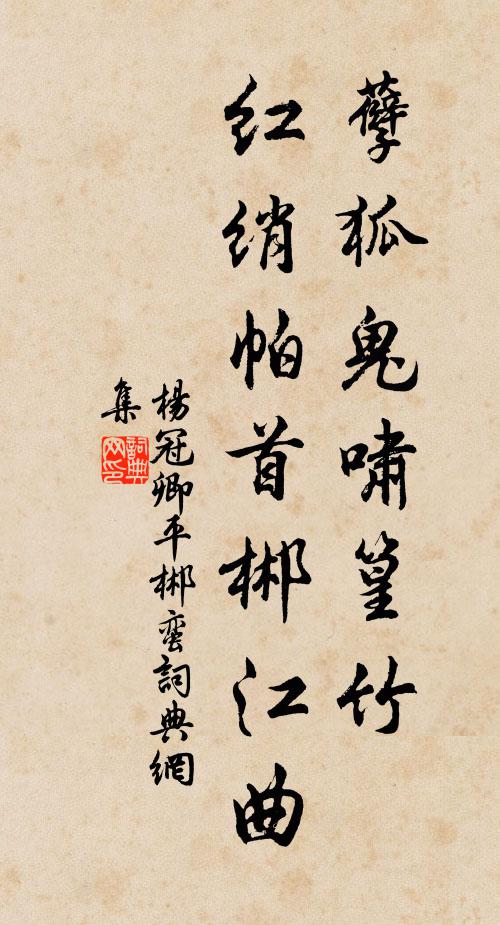 孽狐鬼啸篁竹
红绡帕首郴江曲
楊冠卿平郴蛮詞典網
集
詞典
网印